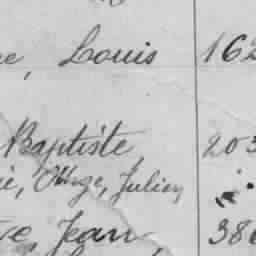 e, Louis 162
Baptiste 203
ie, Ange, Julien,
ve, Jean 386